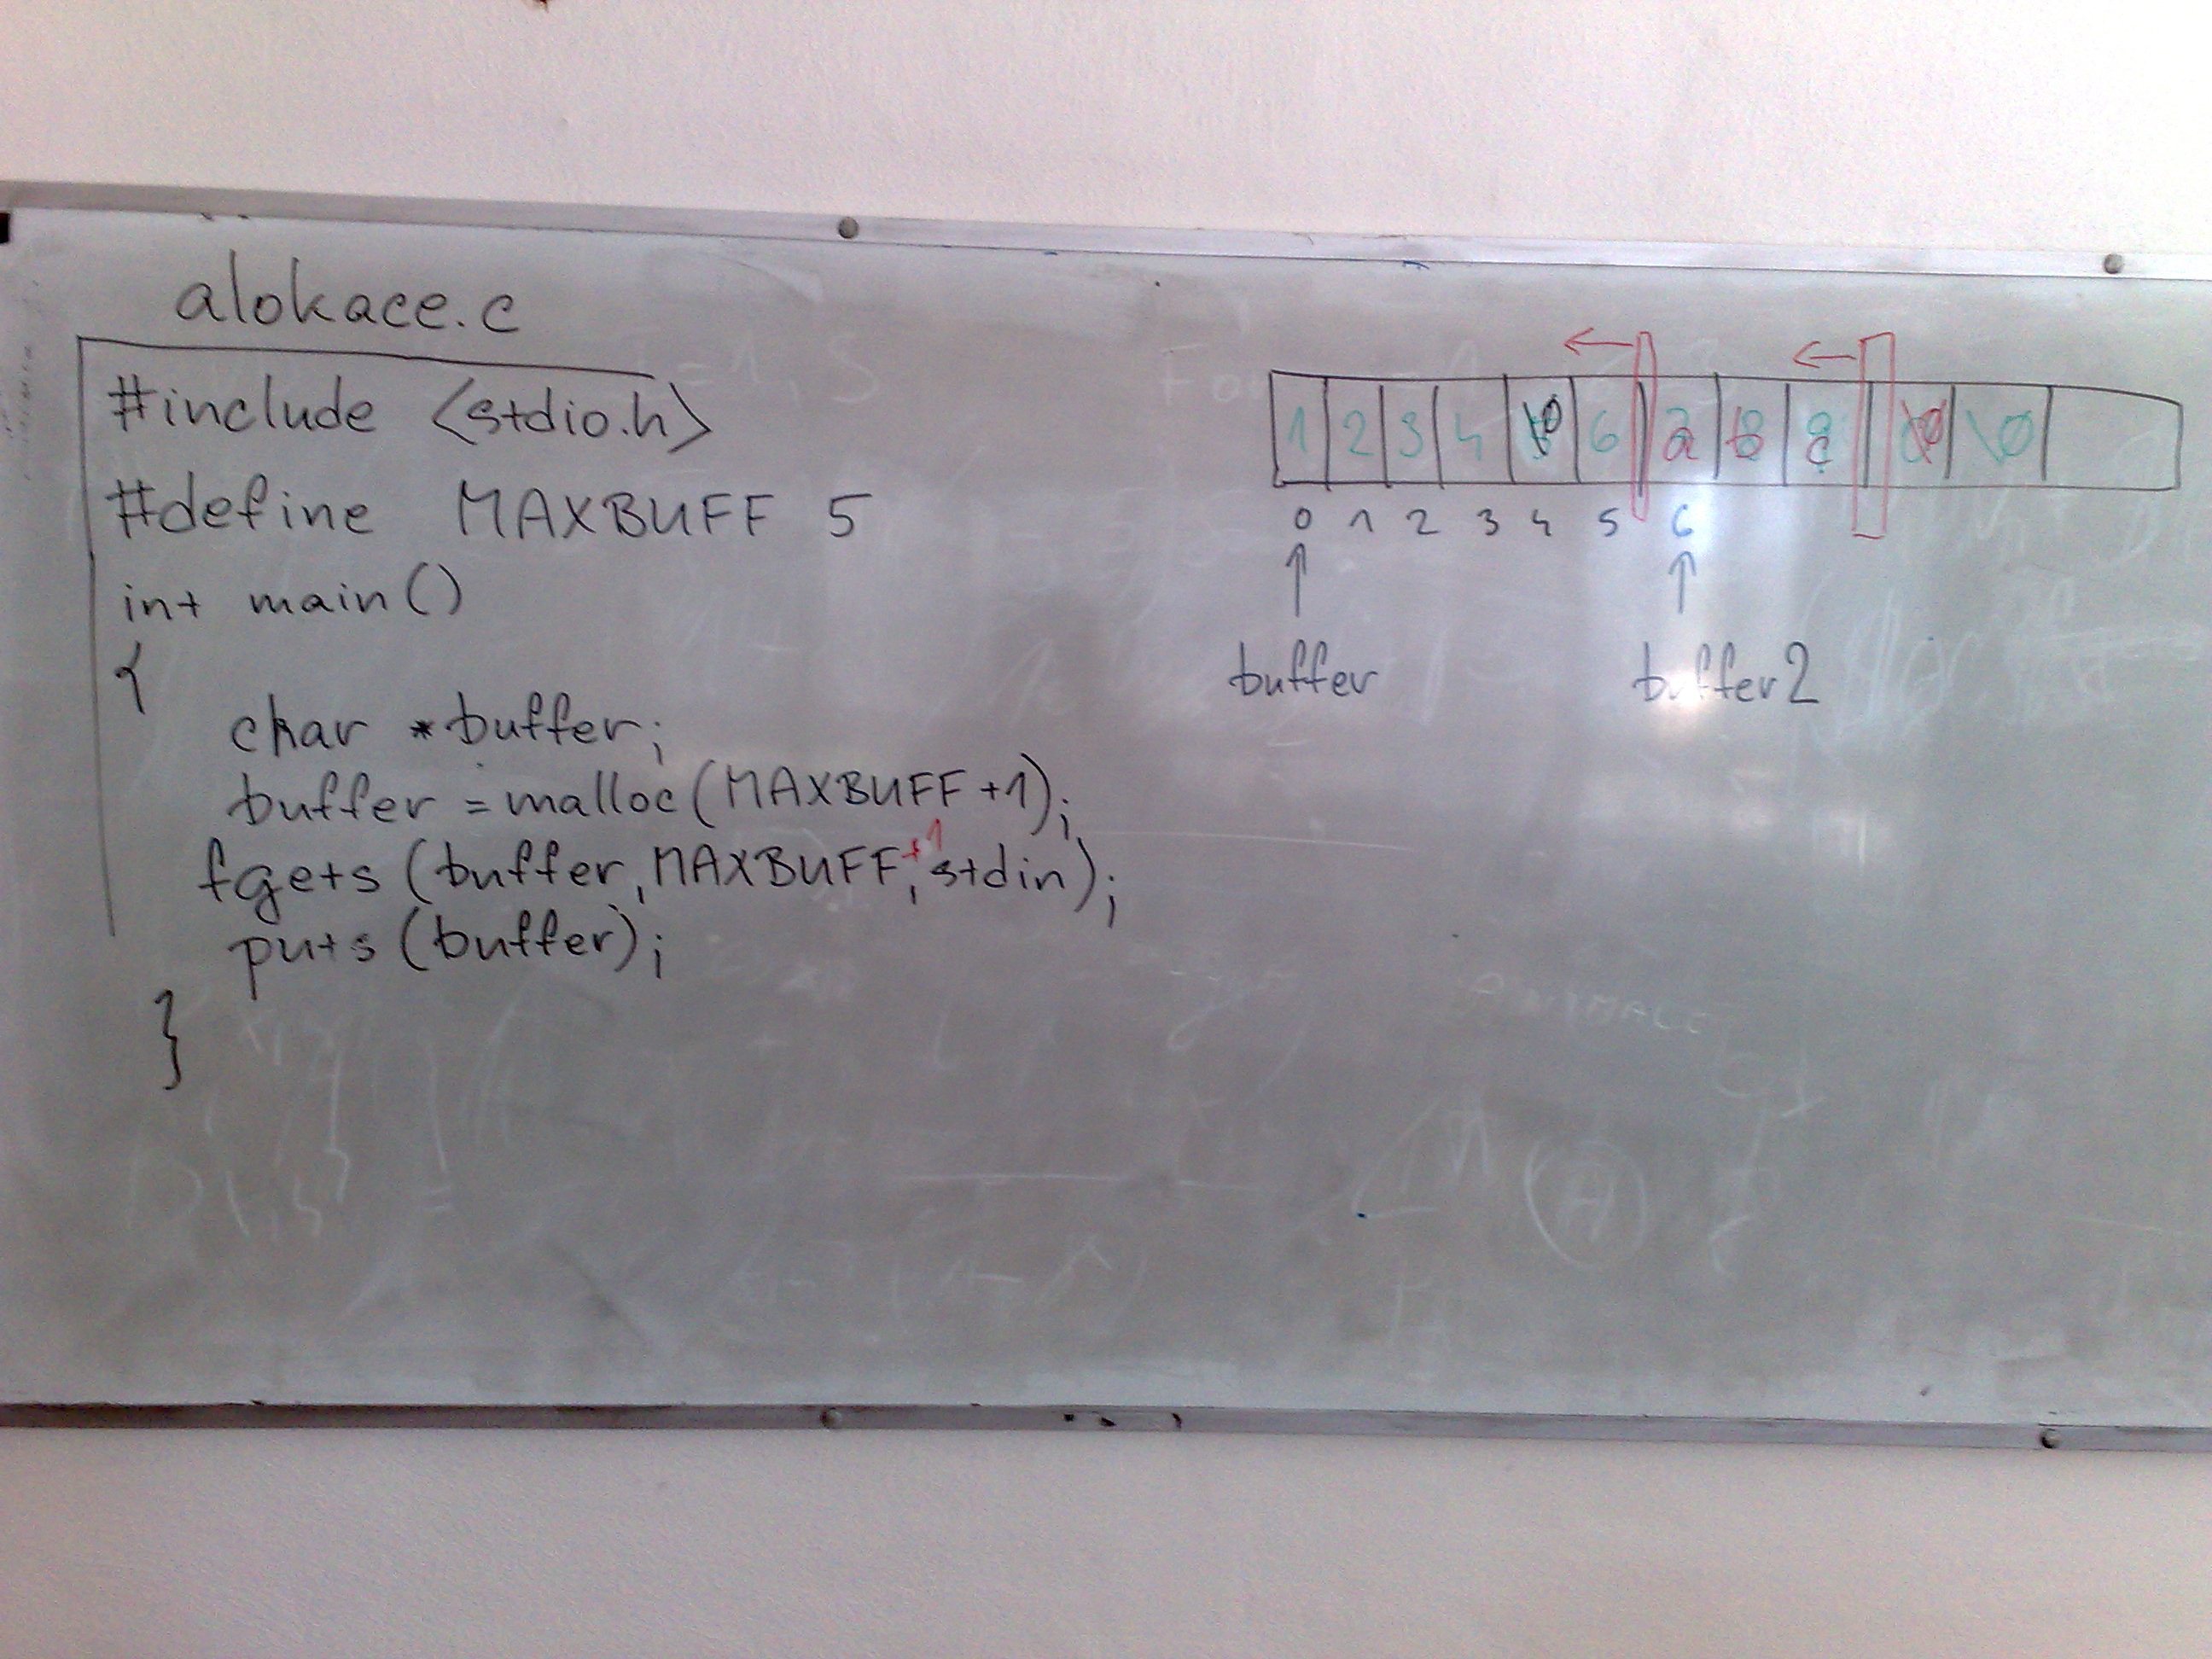 alokace.c
#include <stdio.h>
#define MAXBUFF 5
int main()
{
char *buffer;
buffer = malloc(MAXBUFF+1);
fgets (buffer, MAXBUFF+1, stdin);
puts (buffer);
}
1 2 3 4 \0 6 a b c \0 \0
0 1 2 3 4 5 6
buffer buffer2